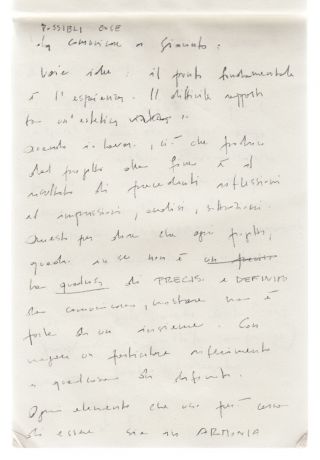 POSSIBILI COSE
da comunicare a Giannto:
Varie idee: il punto fondamentale
è l'esperienza. Il difficile rapporto
tra un'estetica
Quando io lavoro, ciò che produco
dal foglio alla fine è il
risultato di precedenti riflessioni
ed impressioni, analisi, situazioni.
Questo per dire che ogni foglio,
quadro in se non è un
ha qualcosa di PRECISO e DEFINITO
da comunicare, mostrare ma è
parte di un insieme. Con
magari un particolare riferimento
a qualcosa di definito.
Ogni elemento che uso può
di essere sia in ARMONIA